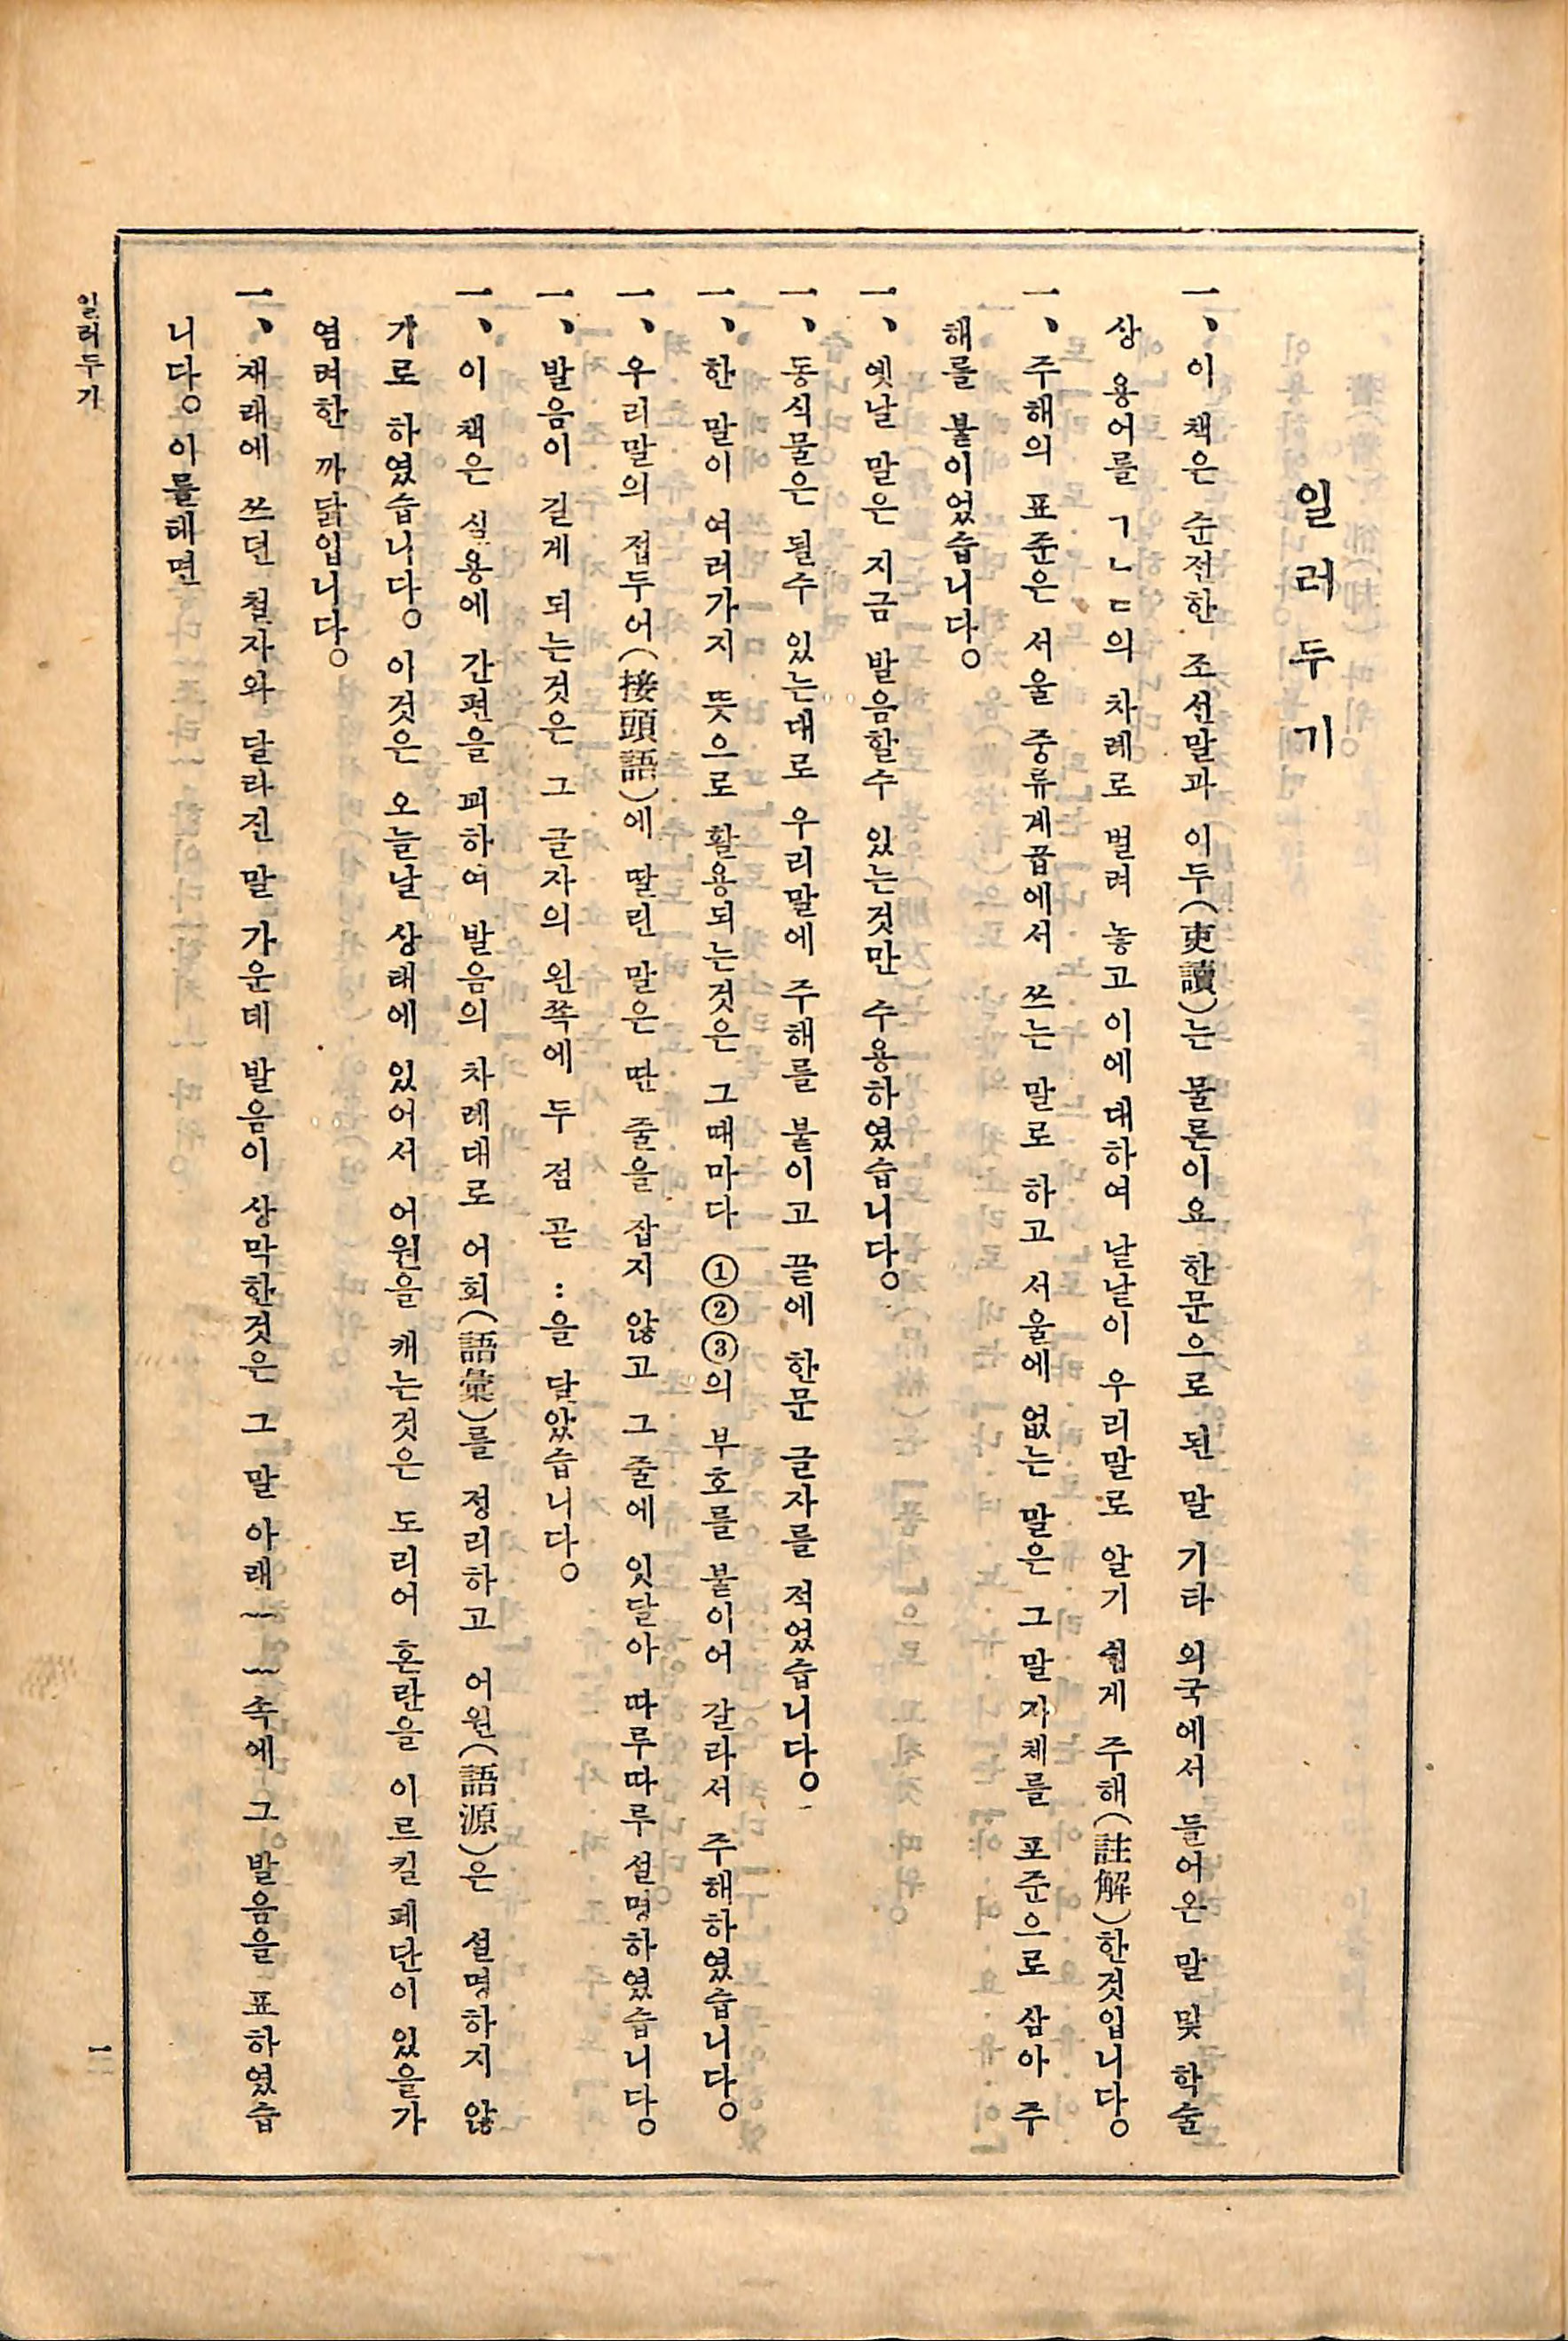 일러두기
一、이 책은 순전한 조선말과 이두(吏讀)는 물론이요 한문으로 된 말 기타 외국에서 들어온 말 및 학술
상 용어를 ㄱㄴㄷ의 차례로 벌려 놓고 이에대하여 낱낱이 우리말로 알기 쉽게 주해(註解)한것입니다。
一、주해의 표준은 서울 중류계급에서 쓰는 말로 하고 서울에 없는 말은 그 말자체를 표준으로 삼아 주
해를 붙이었습니다。
一、옛날 말은 지금 발음할수 있는것만 수용하였습니다。
一、동식물은 될수 있는대로 우리말에 주해를 붙이고 끝에 한문 글자를 적었습니다。
一、한 말이 여러가지 뜻으로 활용되는것은 그때마다 ①②③의 부호를 붙이어 갈라서 주해하였습니다。
一、우리말의 접두어(接頭語)에 딸린 말은 딴 줄을 잡지 않고 그줄에 잇달아 따루따루 설명하였습니다。
一、발음이 길게 되는것은 그 글자의 왼쪽에 두 점 곧 :을 달았습니다。
一、이 책은 실용에 간편을 꾀하여 발음의 차례대로 어휘(語彙)를 정리하고 어원(語源)은 설명하지 않
기로 하였습니다。 이것은 오늘날 상태에 있어서 어원을 캐는것은 도리어 혼란을 이르킬 폐단이 있을가
염려한 까닭입니다。
一、재래에 쓰던 철자와 달라진 말 가운데 발음이 상막한것은 그 말 아래 ( )속에 그 발음을 표하였습
니다。 이를테면
일러두기
一